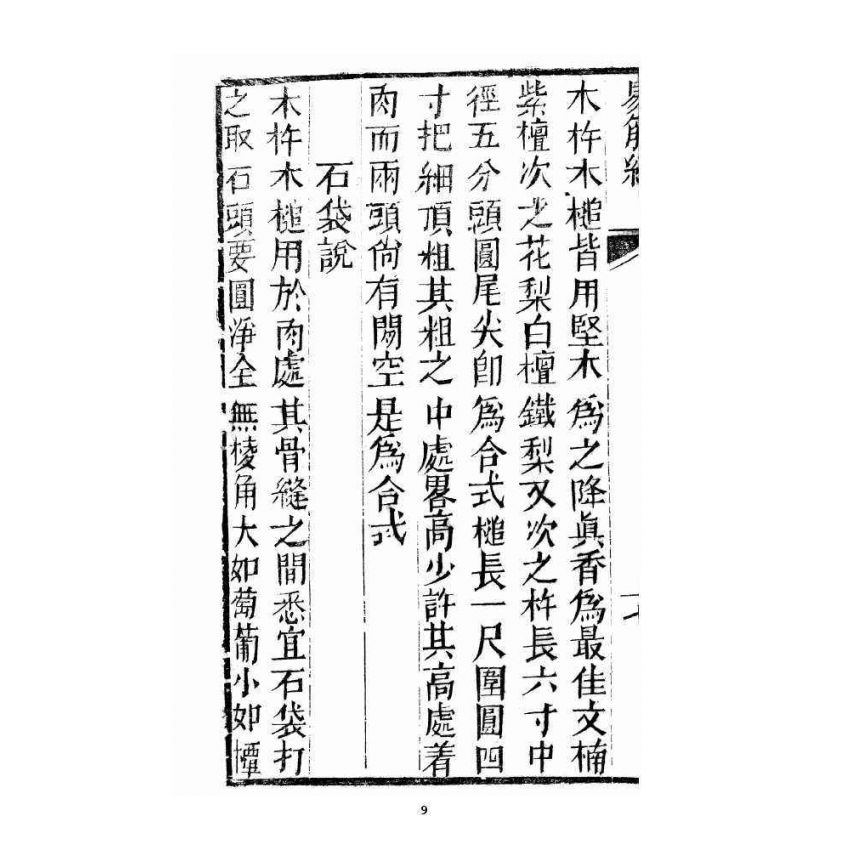 木杵木槌皆用堅木為之降真香為最佳文楠
紫檀次之花梨白檀鐵梨又次之杵長六寸中
徑五分頭圓尾尖卽為合式槌長一尺圍圓四
寸把細頂粗其粗之中處畧高少許其高處着
肉而兩頭尙有閒空是為合式
石袋說
木杵木槌用於肉處其骨縫之間悉宜石袋打
之取石頭要圓淨全無棱角大如萄葡小如
9